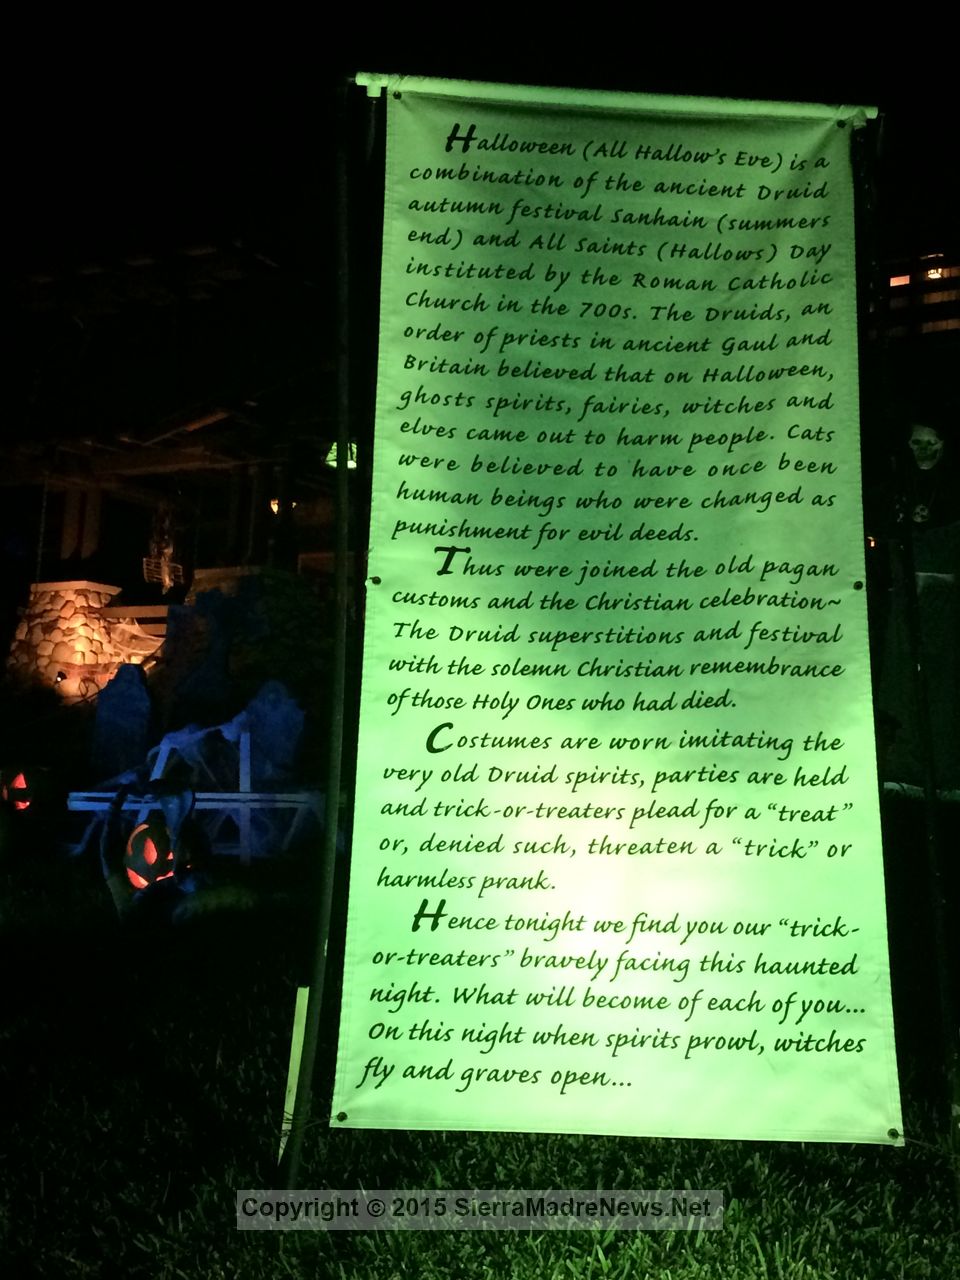 Halloween (All Hallow's Eve) is a
combination of the ancient Druid
autumn festival Sanhain (summers
end) and All Saints (Hallows) Day
instituted by the Roman Catholic
Church in the 700s. The Druids, an
order of priests in ancient Gaul and
Britain believed that on Halloween,
ghosts spirits, fairies, witches and
elves came out to harm people. Cats
were believed to have once been
human beings who were changed as
punishment for evil deeds.
Thus were joined the old pagan
customs and the Christian celebration~
The Druid superstitions and festival
with the solemn Christian remembrance
of those Holy Ones who had died.
Costumes are worn imitating the
very old Druid spirits, parties are held
and trick-or-treaters plead for a "treat"
or, denied such, threaten a "trick" or
harmless prank.
Hence tonight we find you our "trick-
or-treaters" bravely facing this haunted
night. What will become of each of you...
On this night when spirits prowl, witches
fly and graves open...
Copyright © 2015 SierraMadreNews.Net